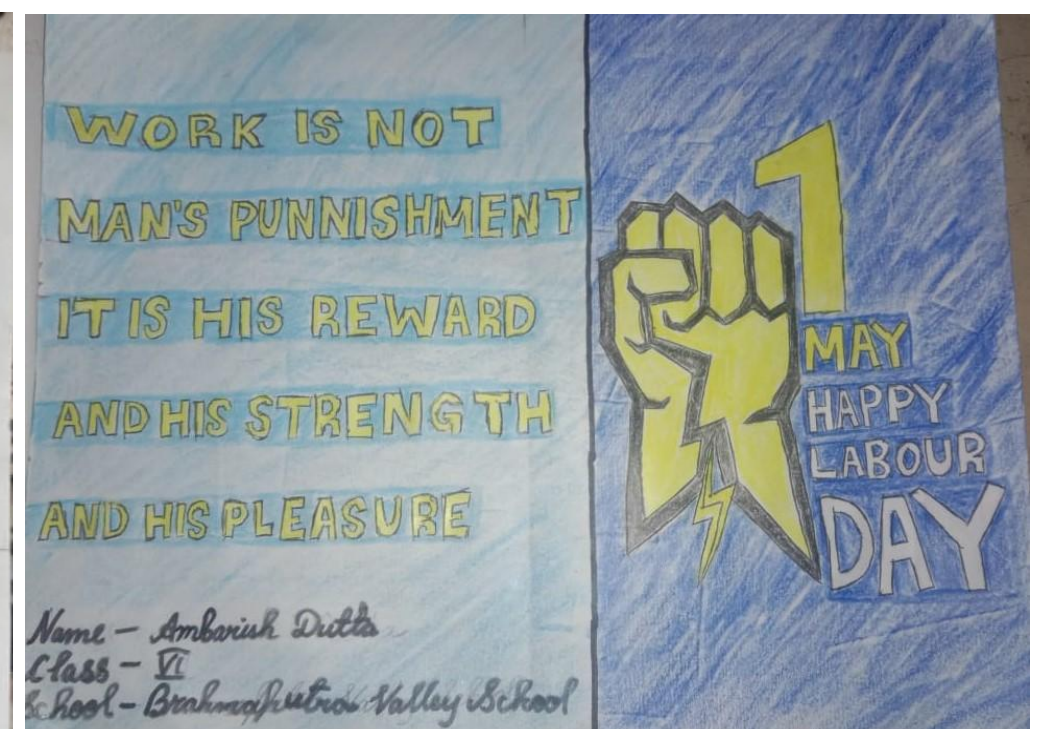 WORK IS NOT
MAN'S PUNNISHMENT
IT IS HIS REWARD
AND HIS STRENGTH
AND HIS PLEASURE
Name - Ambarish Dutta
Class - VI
School - Brahmaputra Valley School
1
MAY
HAPPY
LABOUR
DAY